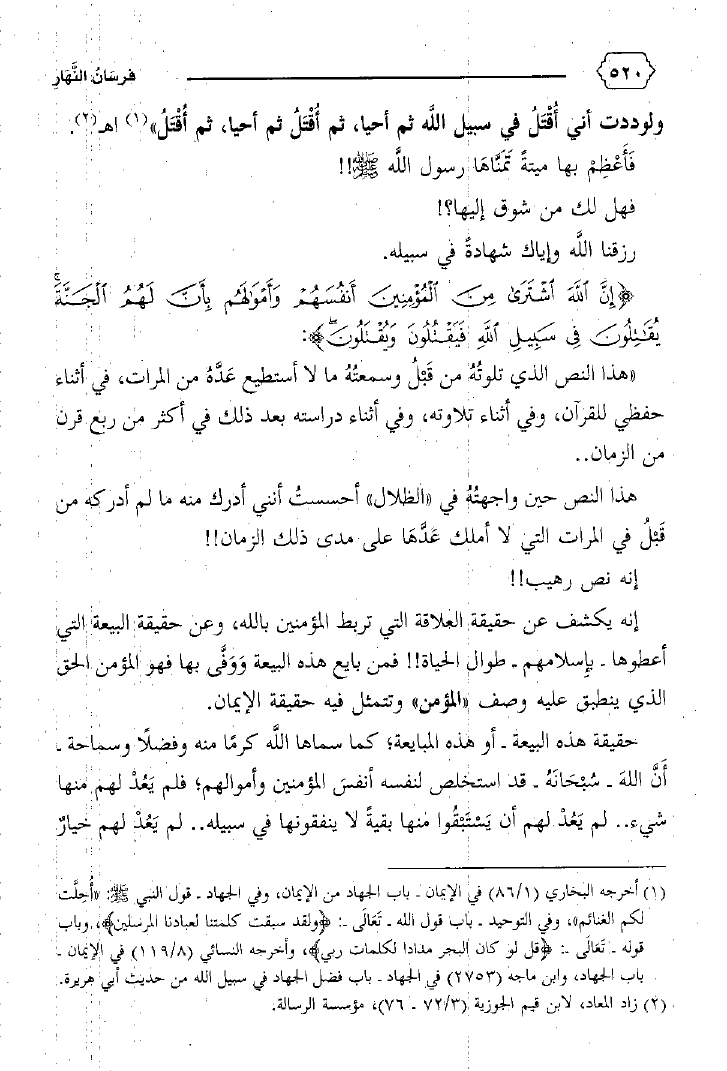 ٥٢٠ فرسَانُ النَّهَارِ
ولوددت أني أُقْتَلُ في سبيل اللَّه ثم أحيا، ثم أُقْتَلُ ثم أحيا، ثم أُقْتَلُ»(١) اهـ(٢).
فَأَعْظِمْ بها ميتةً تَمَنَّاهَا رسول اللَّه ﷺ!!
فهل لك من شوق إليها؟!
رزقنا اللَّه وإياك شهادةً في سبيله.
﴿إِنَّ ٱللَّهَ ٱشْتَرَىٰ مِنَ ٱلْمُؤْمِنِينَ أَنفُسَهُمْ وَأَمْوَٰلَهُم بِأَنَّ لَهُمُ ٱلْجَنَّةَ ۚ
يُقَٰتِلُونَ فِى سَبِيلِ ٱللَّهِ فَيَقْتُلُونَ وَيُقْتَلُونَ ۖ﴾:
«هذا النص الذي تلوتُهُ من قَبْلُ وسمعتُهُ ما لا أستطيع عَدَّهُ من المرات، في أثناء
حفظي للقرآن، وفي أثناء تلاوته، وفي أثناء دراسته بعد ذلك في أكثر من ربع قرن
من الزمان..
هذا النص حين واجهتُهُ في «الظلال» أحسستُ أنني أدرك منه ما لم أدركه من
قَبْلُ في المرات التي لا أملك عَدَّهَا على مدى ذلك الزمان!!
إنه نص رهيب!!
إنه يكشف عن حقيقة العلاقة التي تربط المؤمنين بالله، وعن حقيقة البيعة التي
أعطوها ـ بإسلامهم ـ طوال الحياة!! فمن بايع هذه البيعة وَوَفَّى بها فهو المؤمن الحق
الذي ينطبق عليه وصف «المؤمن» وتتمثل فيه حقيقة الإيمان.
حقيقة هذه البيعة ـ أو هذه المبايعة؛ كما سماها اللَّه كرمًا منه وفضلًا وسماحة ـ
أَنَّ اللهَ ـ سُبْحَانَهُ ـ قد استخلص لنفسه أنفسَ المؤمنين وأموالهم؛ فلم يَعُدْ لهم منها
شيء.. لم يَعُدْ لهم أن يَسْتَبْقُوا منها بقيةً لا ينفقونها في سبيله.. لم يَعُدْ لهم خيارٌ
(١) أخرجه البخاري (٨٦/١) في الإيمان ـ باب الجهاد من الإيمان، وفي الجهاد ـ قول النبي ﷺ: «أُحِلَّت
لكم الغنائم»، وفي التوحيد ـ باب قول الله ـ تَعَالَى ـ: ﴿ولقد سبقت كلمتنا لعبادنا المرسلين﴾، وباب
قوله ـ تَعَالَى ـ: ﴿قل لو كان البحر مدادا لكلمات ربي﴾، وأخرجه النسائي (١١٩/٨) في الإيمان ـ
باب الجهاد، وابن ماجه (٢٧٥٣) في الجهاد ـ باب فضل الجهاد في سبيل الله من حديث أبي هريرة.
(٢) زاد المعاد، لابن قيم الجوزية (٧٢/٣ ـ ٧٦)، مؤسسة الرسالة.